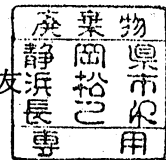 廃棄物
静岡県
浜松市
長之印
専用
友